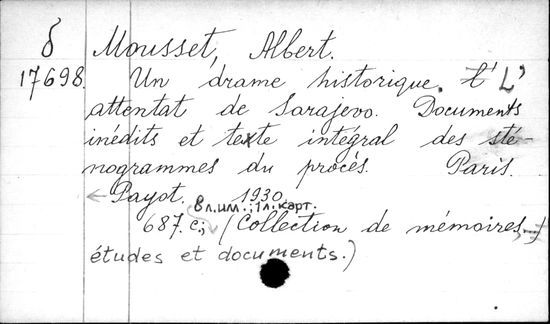 δ Mousset, Albert.
17698. Un drame historique. L'
attentat de Sarajevo. Documents
inédits et texte intégral des sté-
nogrammes du procès. Paris.
Payot, 1930.
8 л.илл.; 1 л. карт.
687 с.; (Collection de mémoires,
études et documents.)